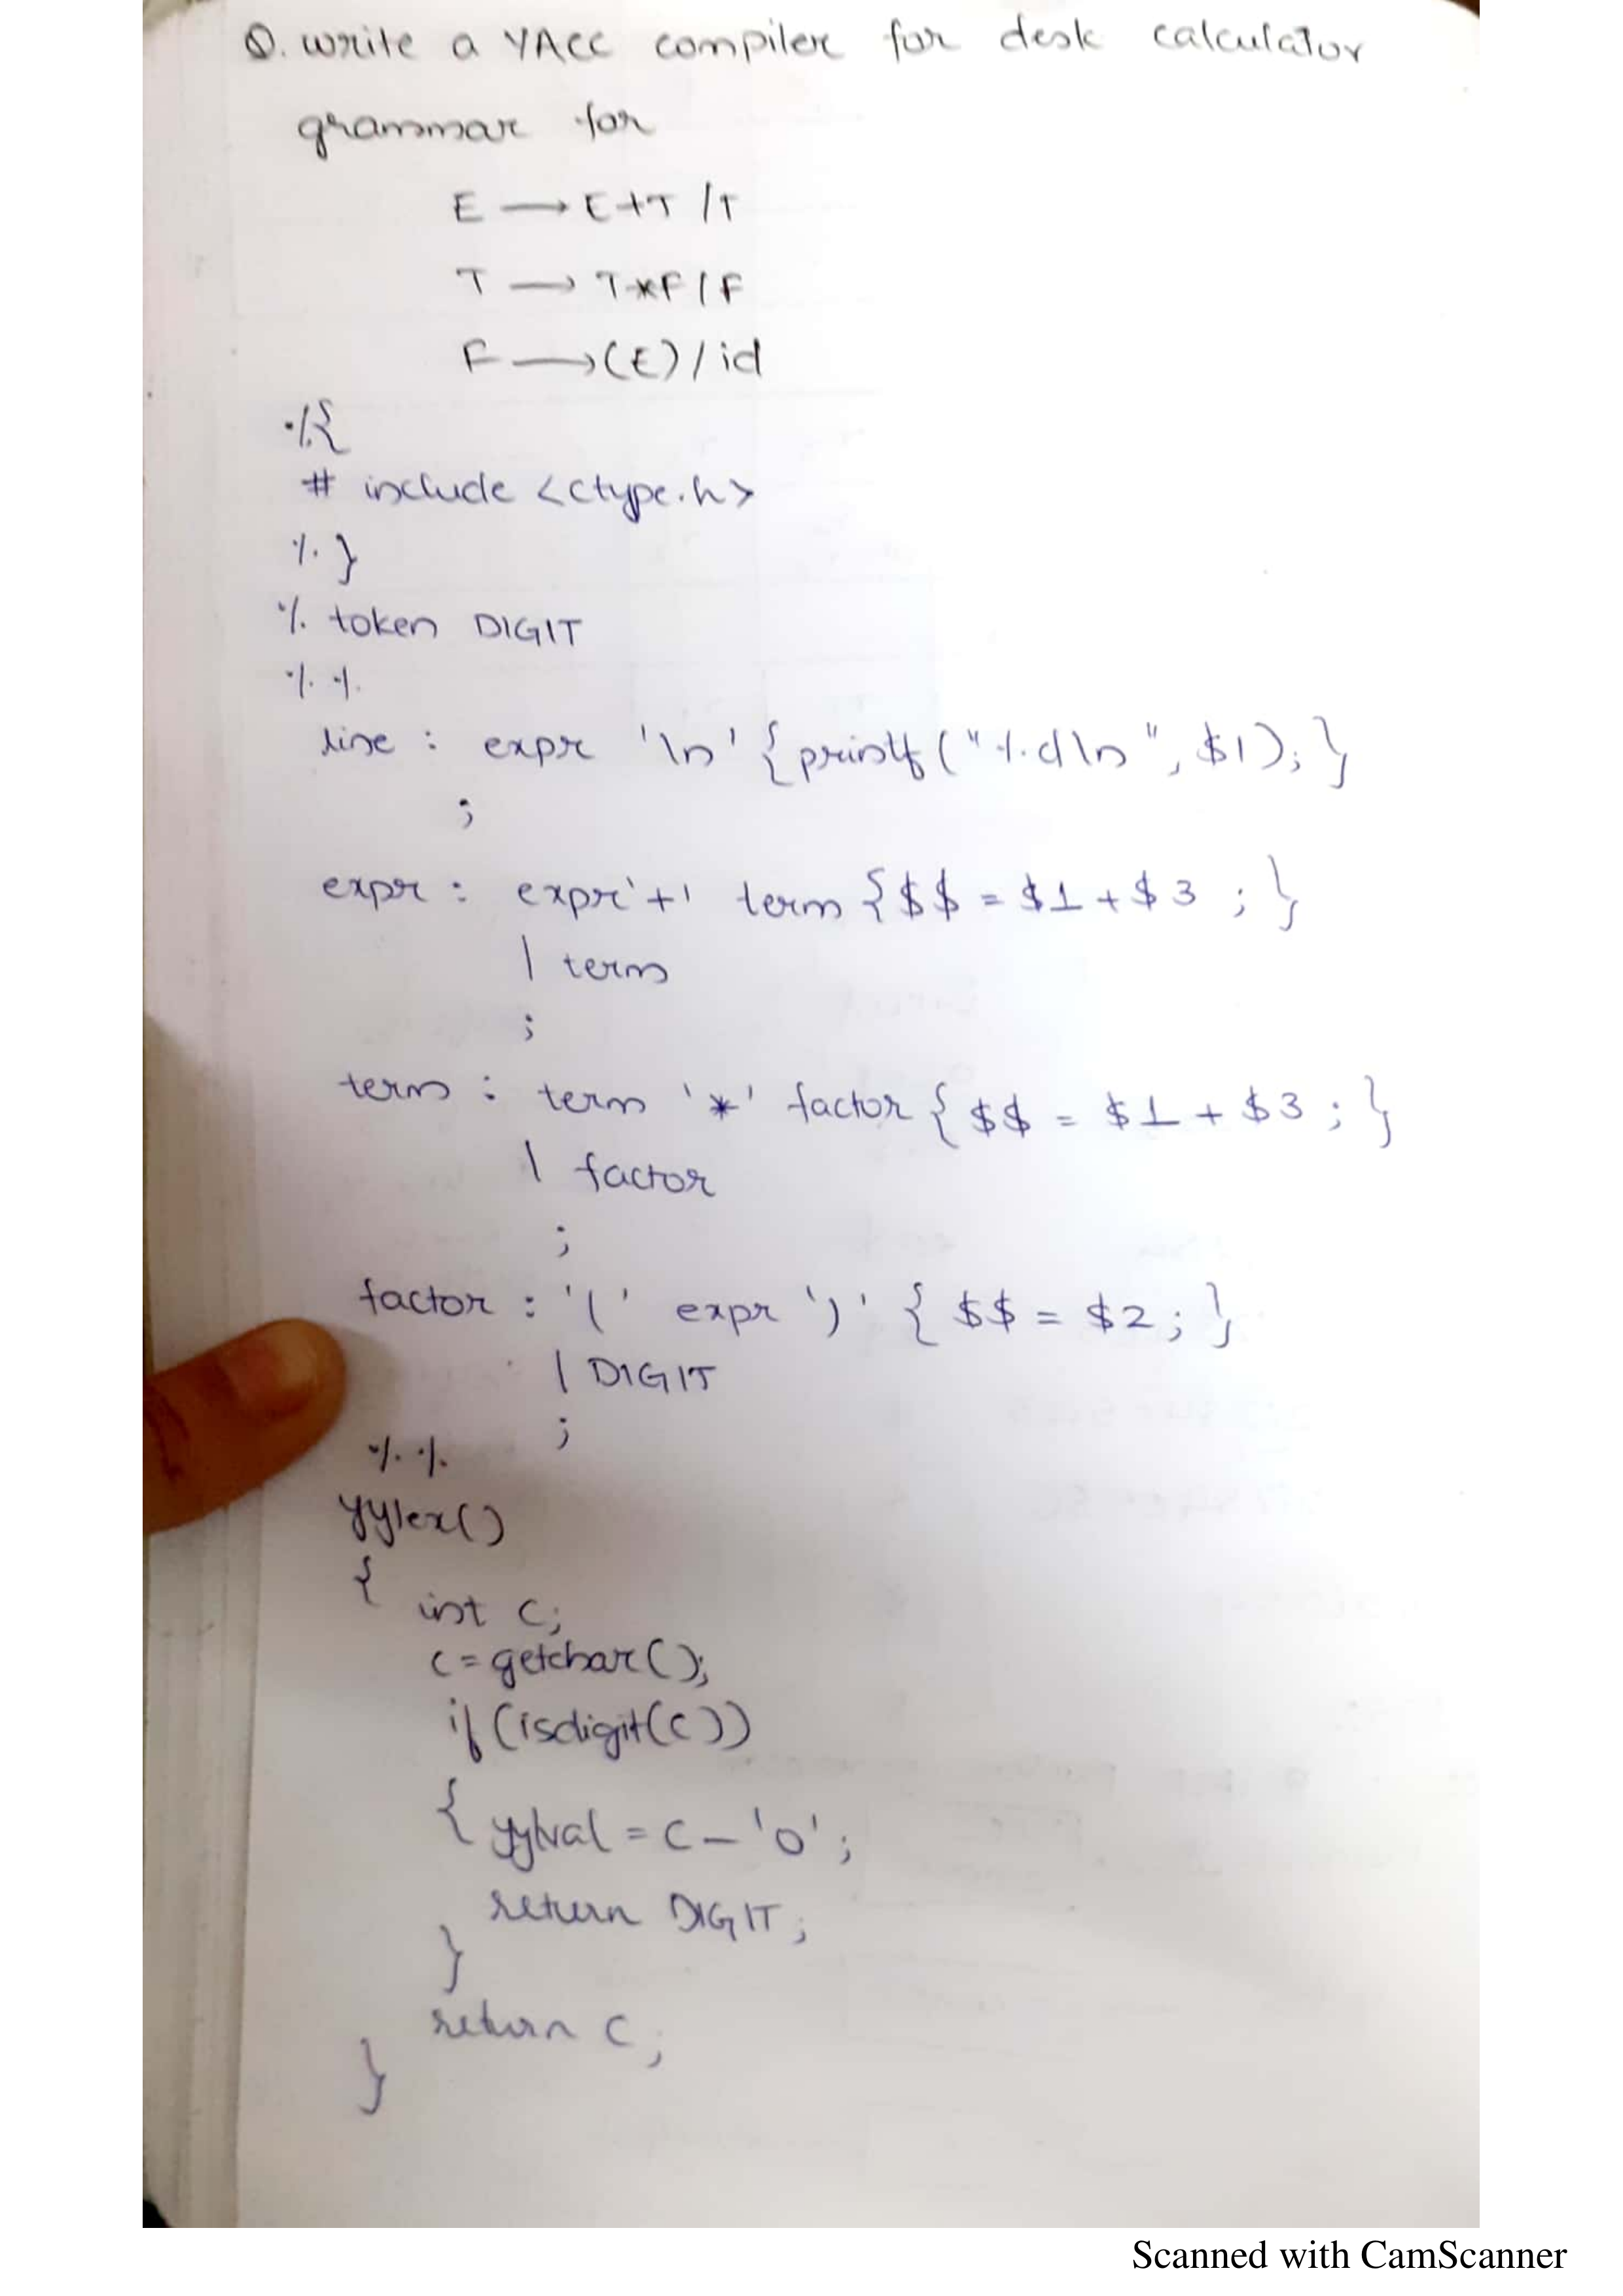 Q. write a YACC compiler for desk calculator
grammar for
E → E+T /T
T → T*F / F
F → (E) / id
%{
# include <ctype.h>
%}
% token DIGIT
%%
line : expr '\n' {printf("%d\n", $1);}
;
expr : expr '+' term {$$ = $1 + $3 ; }
| term
;
term : term '*' factor { $$ = $1 + $3 ; }
| factor
;
factor : '(' expr ')' { $$ = $2 ; }
| DIGIT
;
%%
yylex()
{
int c;
c = getchar();
if (isdigit(c))
{ yylval = c - '0';
return DIGIT;
}
return c;
}
Scanned with CamScanner